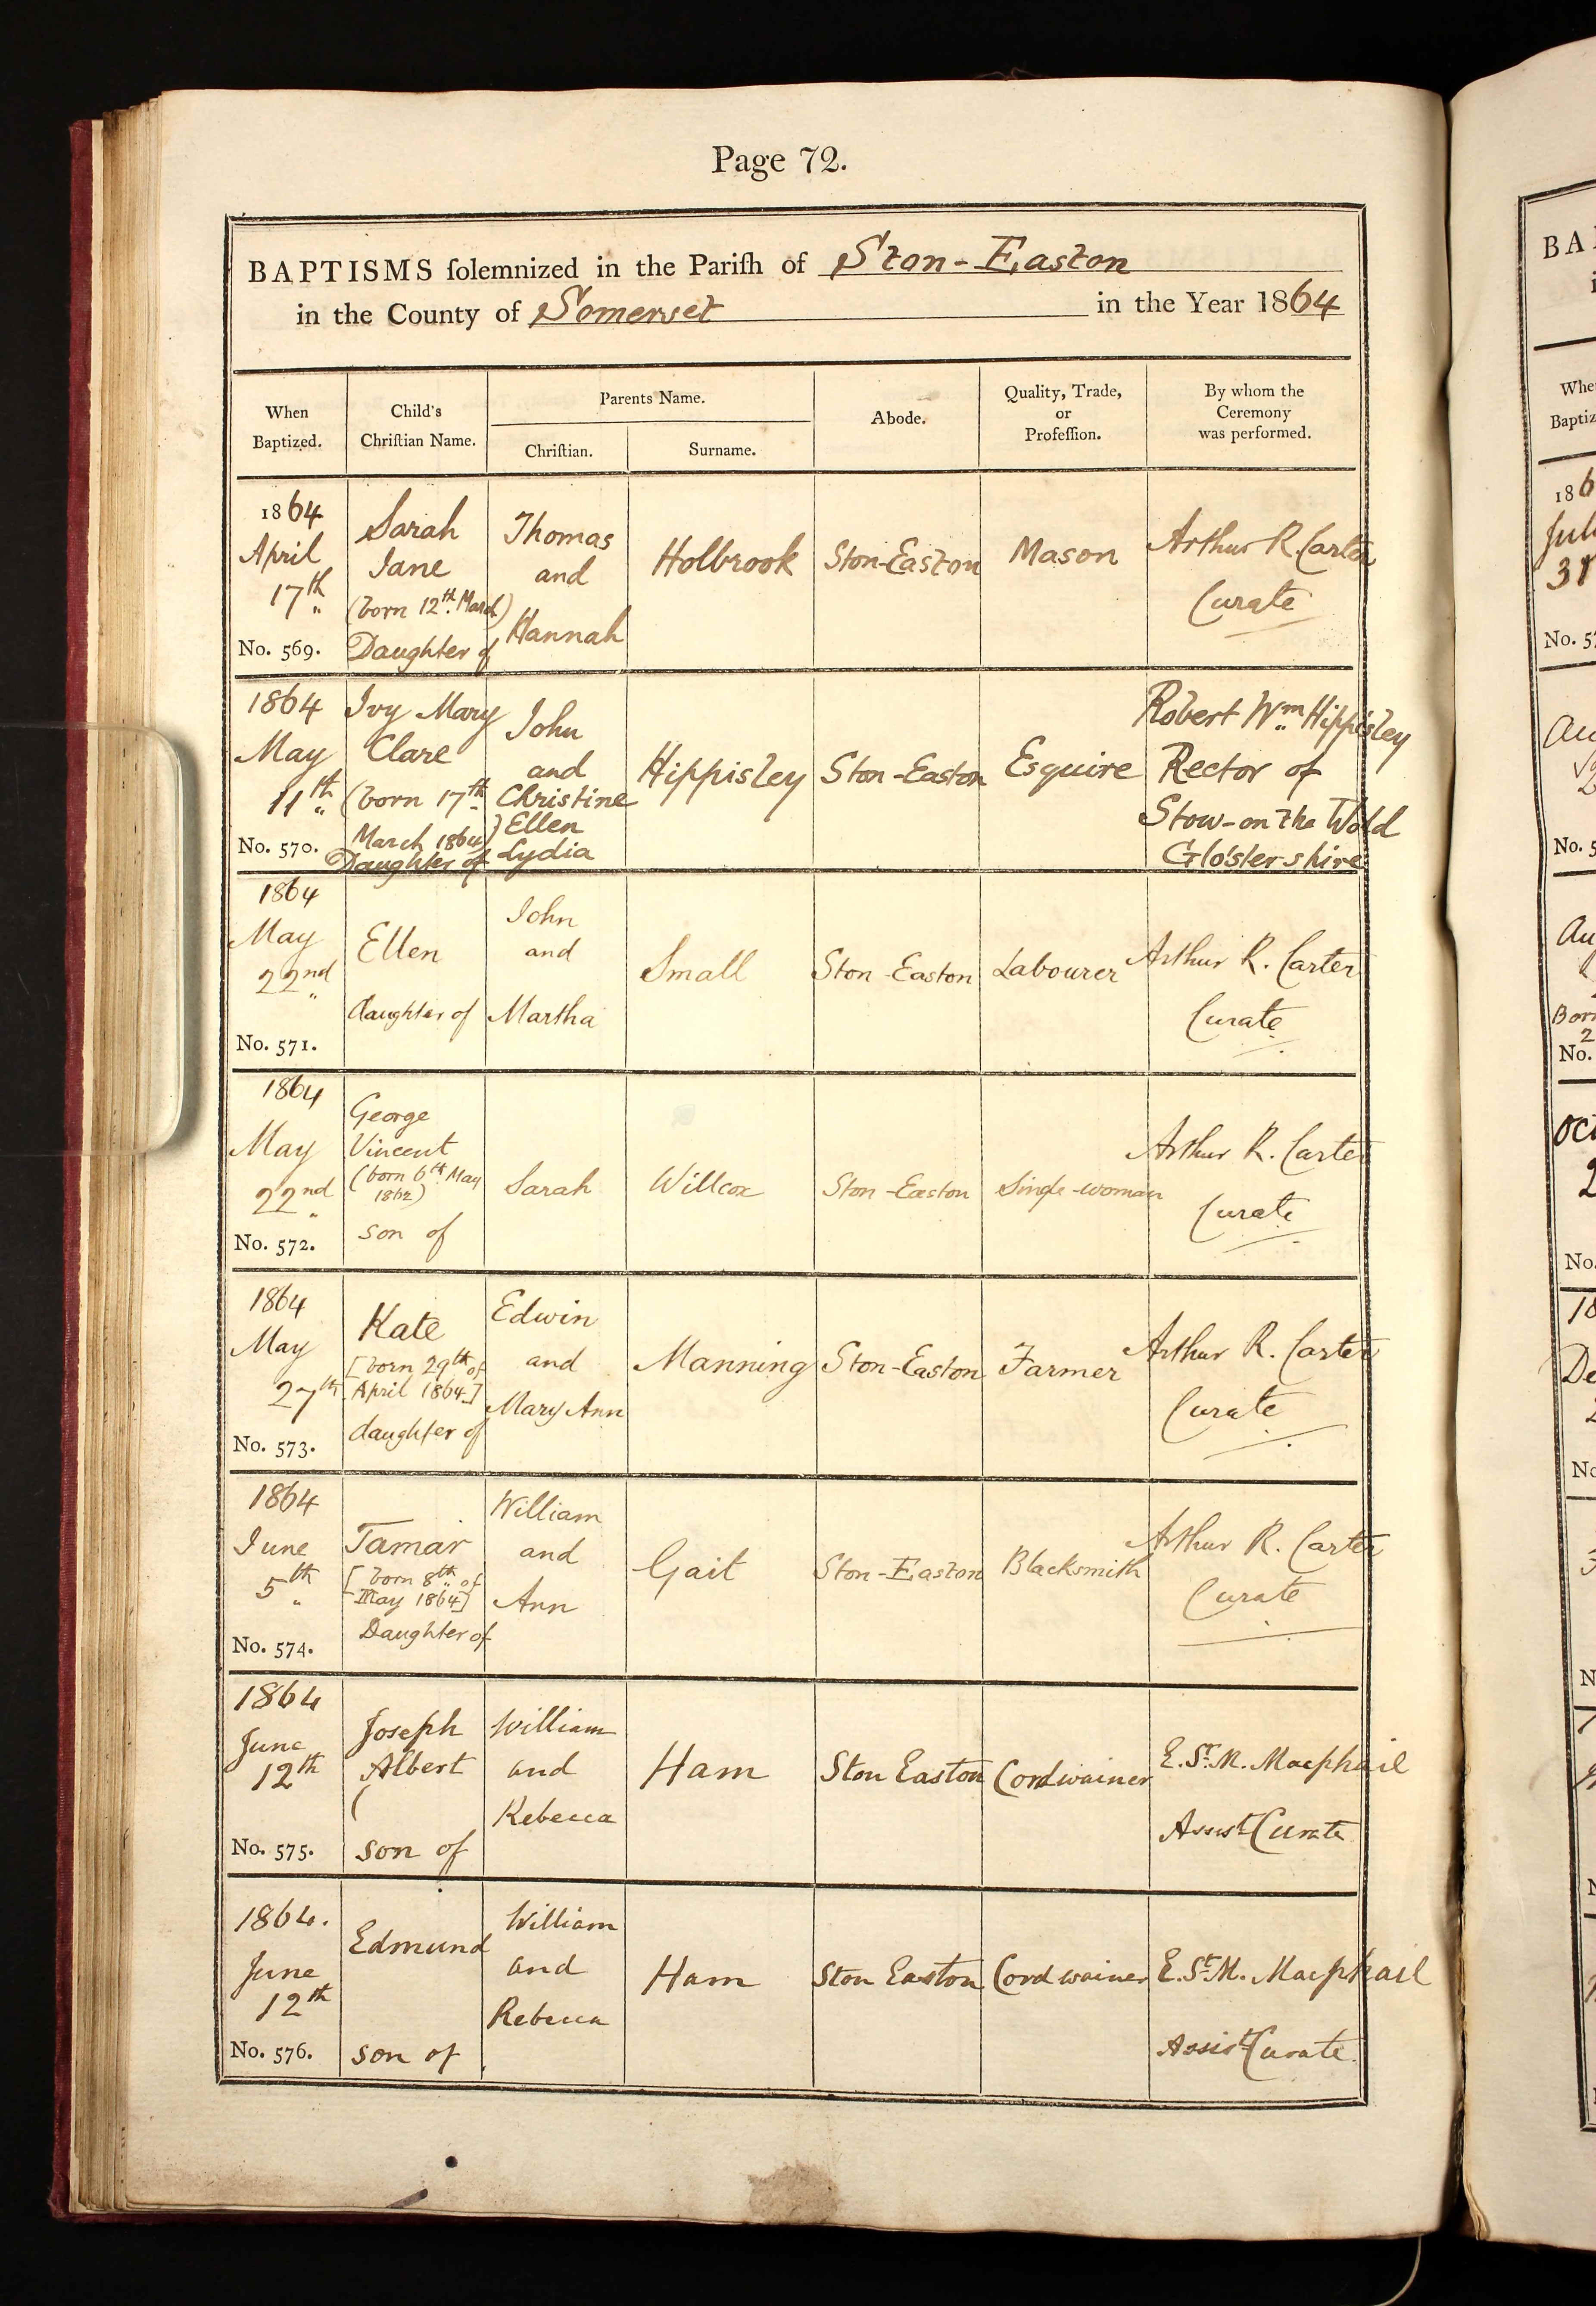 Page 72.
BAPTISMS ſolemnized in the Pariſh of Ston-Easton
in the County of Somerset in the Year 1864
When Baptized.
Child's Chriſtian Name.
Parents Name.
Chriſtian.
Surname.
Abode.
Quality, Trade, or Profeſſion.
By whom the Ceremony was performed.
1864
April
17th
No. 569.
Sarah
Jane
(born 12th March)
Daughter of
Thomas
and
Hannah
Holbrook
Ston-Easton
Mason
Arthur R. Carter
Curate
1864
May
11th
No. 570.
Ivy Mary
Clare
(born 17th
March 1864)
Daughter of
John
and
Christine
Ellen
Lydia
Hippisley
Ston-Easton
Esquire
Robert Wm Hippisley
Rector of
Stow-on the Wold
Glo'stershire
1864
May
22nd
No. 571.
Ellen
daughter of
John
and
Martha
Small
Ston-Easton
Labourer
Arthur R. Carter
Curate
1864
May
22nd
No. 572.
George
Vincent
(born 6th May
1862)
son of
Sarah
Willcox
Ston-Easton
Single-woman
Arthur R. Carter
Curate
1864
May
27th
No. 573.
Kate
[born 29th of
April 1864]
daughter of
Edwin
and
Mary Ann
Manning
Ston-Easton
Farmer
Arthur R. Carter
Curate
1864
June
5th
No. 574.
Tamar
[born 8th of
May 1864]
Daughter of
William
and
Ann
Gait
Ston-Easton
Blacksmith
Arthur R. Carter
Curate
1864
June
12th
No. 575.
Joseph
Albert
(
son of
William
and
Rebecca
Ham
Ston Easton
Cordwainer
E. St. M. Macphail
Assist Curate
1864.
June
12th
No. 576.
Edmund
son of
William
and
Rebecca
Ham
Ston Easton
Cordwainer
E. St. M. Macphail
Assist Curate